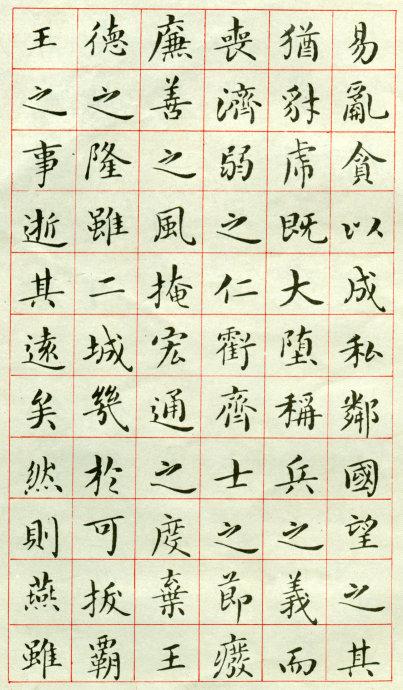 易亂貪以成私鄰國望之其
猶豺虎既大堕稱兵之義而
喪濟弱之仁虧齊士之節廢
廉善之風掩宏通之度棄王
德之隆雖二城幾於可拔霸
王之事逝其遠矣然則燕雖